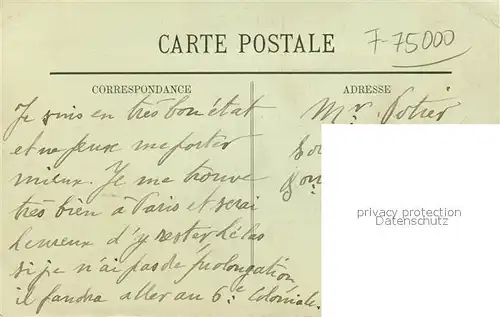 CARTE POSTALE
F-75000
CORRESPONDANCE
ADRESSE
Je suis en très bon état
et ne peux me porter
mieux. Je me trouve
très bien à Paris et serai
heureux d'y rester hélas
si je n'ai pas de prolongation
il faudra aller au 6e Coloniale.
Mr. Potier
privacy protection